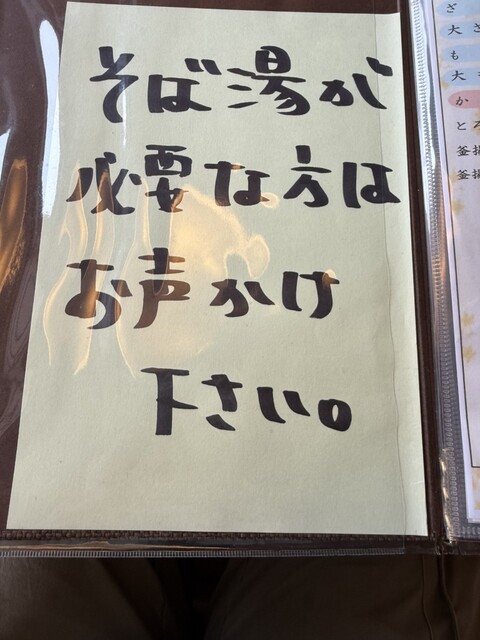 そば湯が
必要な方は
お声かけ
下さい。
ざ
大
も
大
か
とろ
釜揚
釜揚